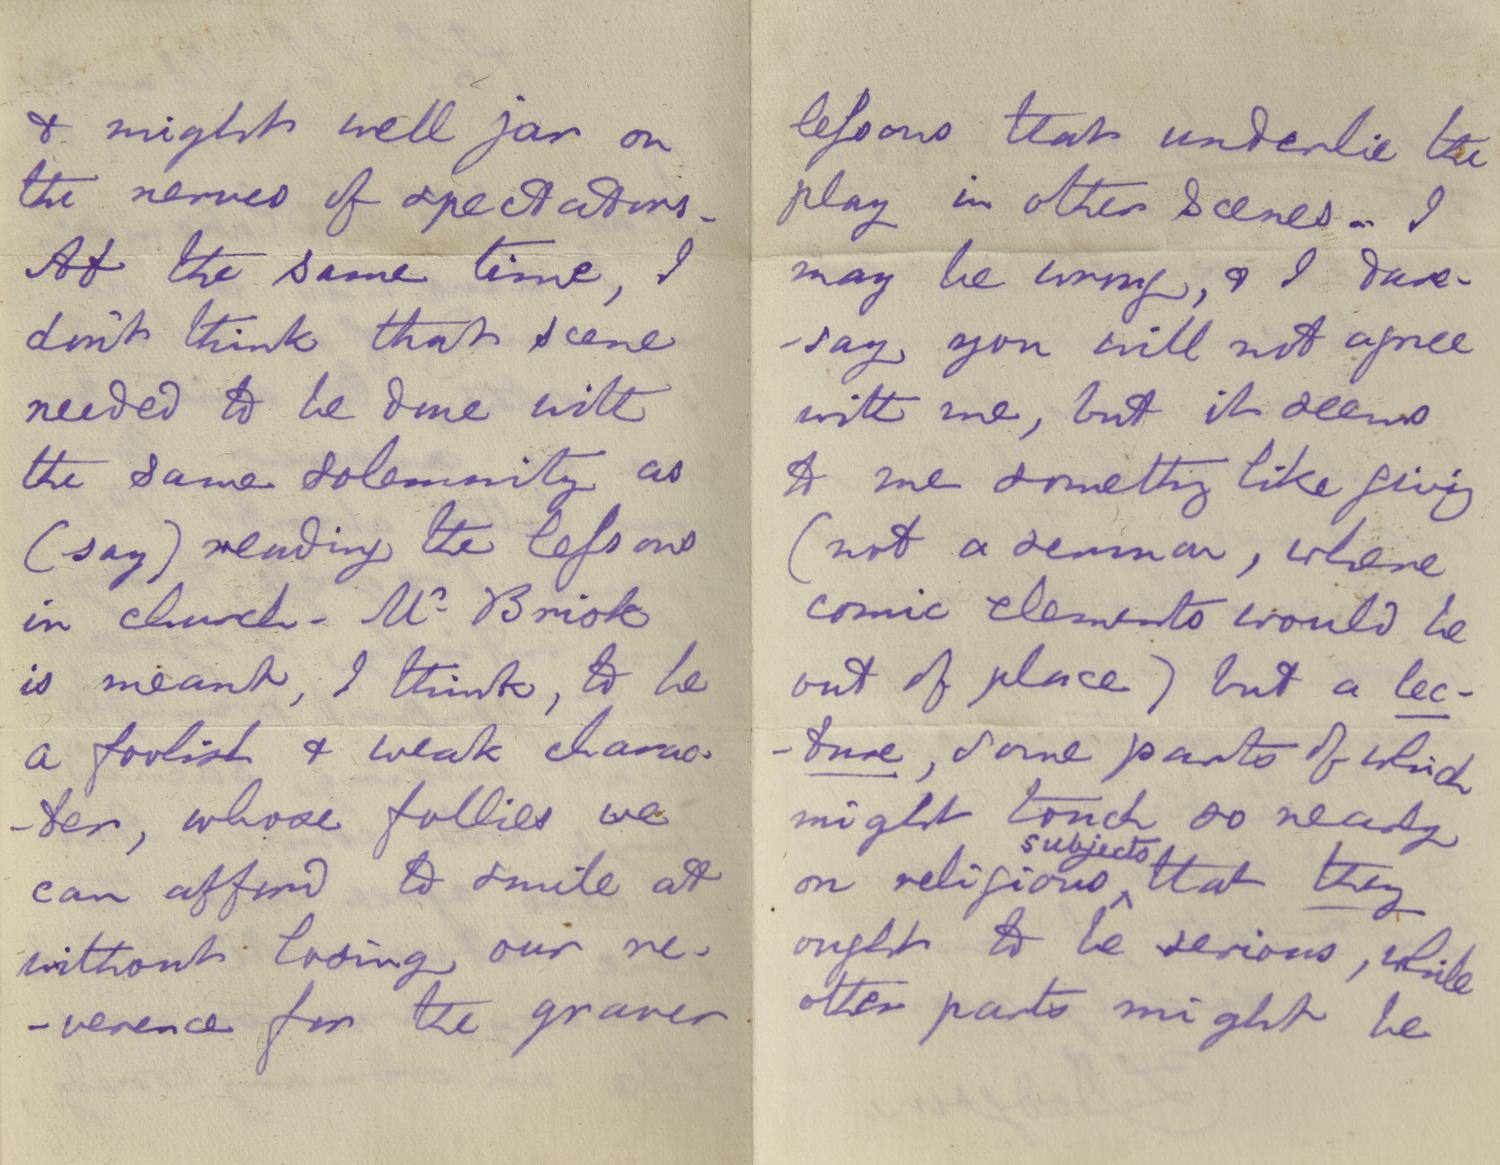 & might well jar on
the nerves of spectators.
At the same time, I
don't think that scene
needed to be done with
the same solemnity as
(say) reading the lessons
in church. Mr. Brick
is meant, I think, to be
a foolish & weak charac-
-ter, whose follies we
can afford to smile at
without losing our re-
-verence for the graver
lessons that underlie the
play in other scenes. I
may be wrong, & I dare-
-say you will not agree
with me, but it seems
to me something like giving
(not a sermon, where
comic elements would be
out of place) but a lec-
-ture, some parts of which
might touch so nearly
on religious subjects that they
ought to be serious, while
other parts might be